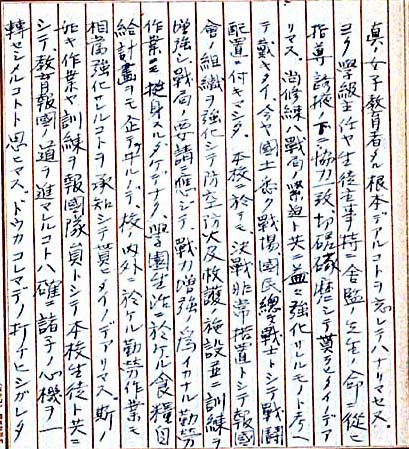 真ノ女子教育者タル根本デアルコトヲ忘レテハナリマセヌ。
ヨク學級主任ヤ生徒主事特ニ舍監ノ先生ノ命ニ從ヒ
指導誘掖ノ下ニ協力一致切磋琢磨シテ貰ヒタイノデア
リマス。尚修練ハ戰局ノ緊迫ト共ニ益〻強化サレルモノト考ヘ
テ戴キタイ。今ヤ國土悉ク戰場國民總テ戰士トシテ戰鬪
配置ニ付キマシタ。本校ニ於テモ決戰非常措置トシテ報國
會ノ組織ヲ強化シテ防空防火及救護ノ施設並ニ訓練ヲ
増強シ戰局ノ要請ニ應ジテ、戰力増強ノ爲イカナル勤勞
作業ニモ挺身スルダケデナク、學園生活ニ於ケル食糧自
給計畫ヲモ企テヰルノデ、校内外ニ於ケル勤勞作業モ
相當強化サレルコトヲ承知シテ貰ヒタイノデアリマス。斯ノ
如キ作業ヤ訓練ヲ報國隊員トシテ本校生徒ト共ニ
シテ、教育報國ノ道ヲ進マレルコトハ確ニ諸子ノ心機ヲ一
轉セシルコトト思ヒマス。ドウカコレマデノ打チヒシガレタ